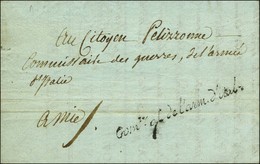 Au Citoyen Pelizzonne
Commissaire des guerres, de l'armée
d'Italie
A Nice
de l'arm. d'Italie